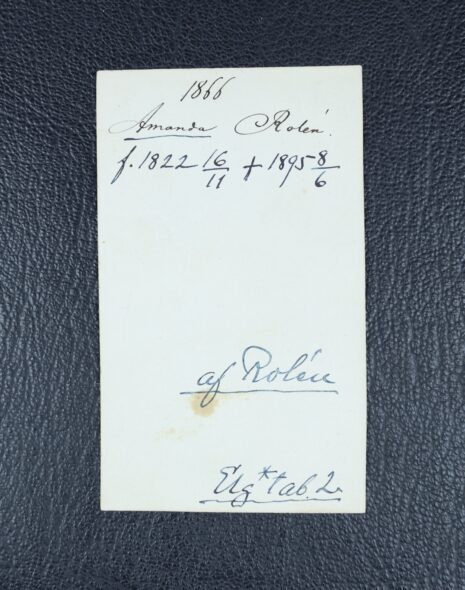 1866
Amanda Rolén.
f. 1822 16/11 † 1895 8/6
af Rolén
Elg* tab. 2.